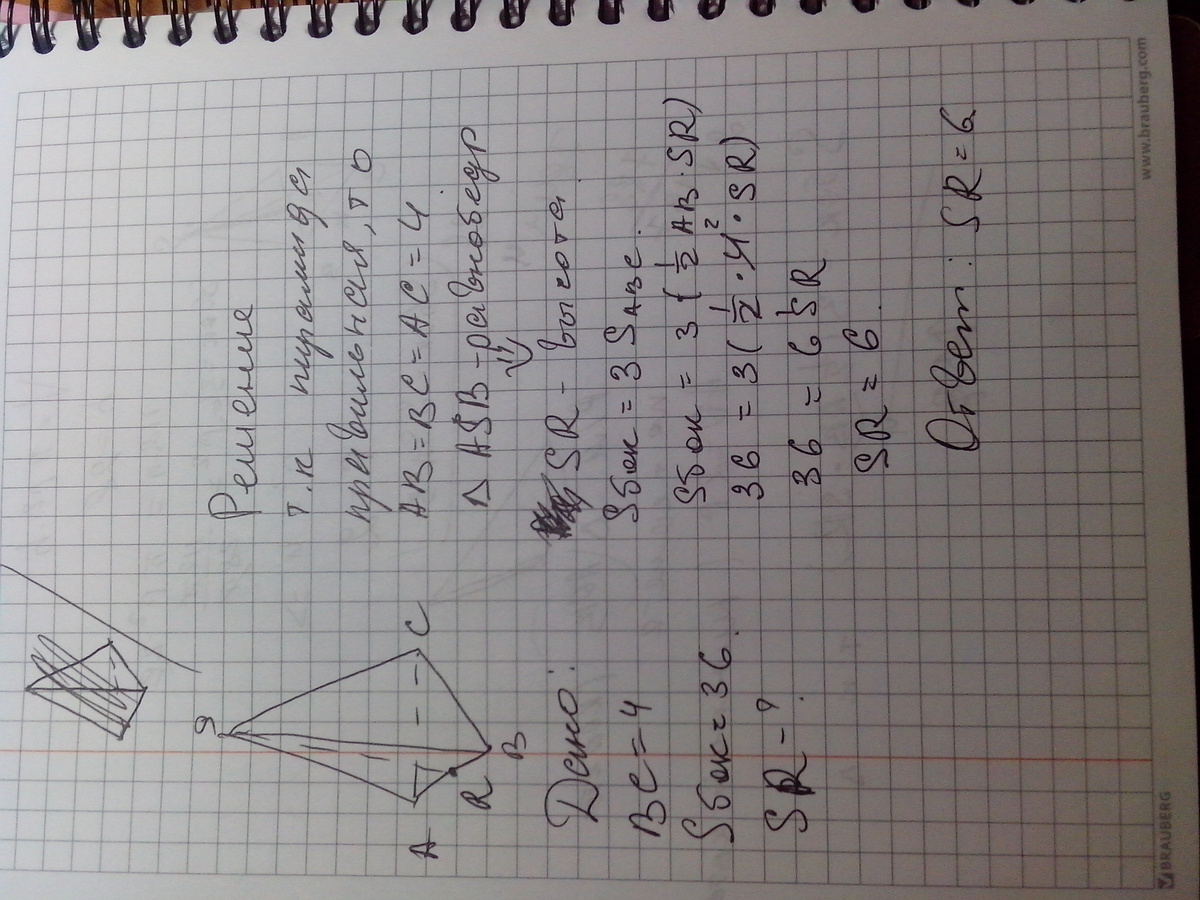 S
A
R
B
C
Дано:
BC = 4
Sбок = 36.
SR - ?
Решение
т.к пирамида
правильная, то
AB = BC = AC = 4
Δ ASB - равнобедр
⇓
SR - высота.
Sбок = 3 SABC.
Sбок = 3 (1/2 AB · SR)
36 = 3 (1/2 · 4² · SR)
36 = 6 SR
SR = 6.
Ответ: SR = 6
BRAUBERG
www.brauberg.com